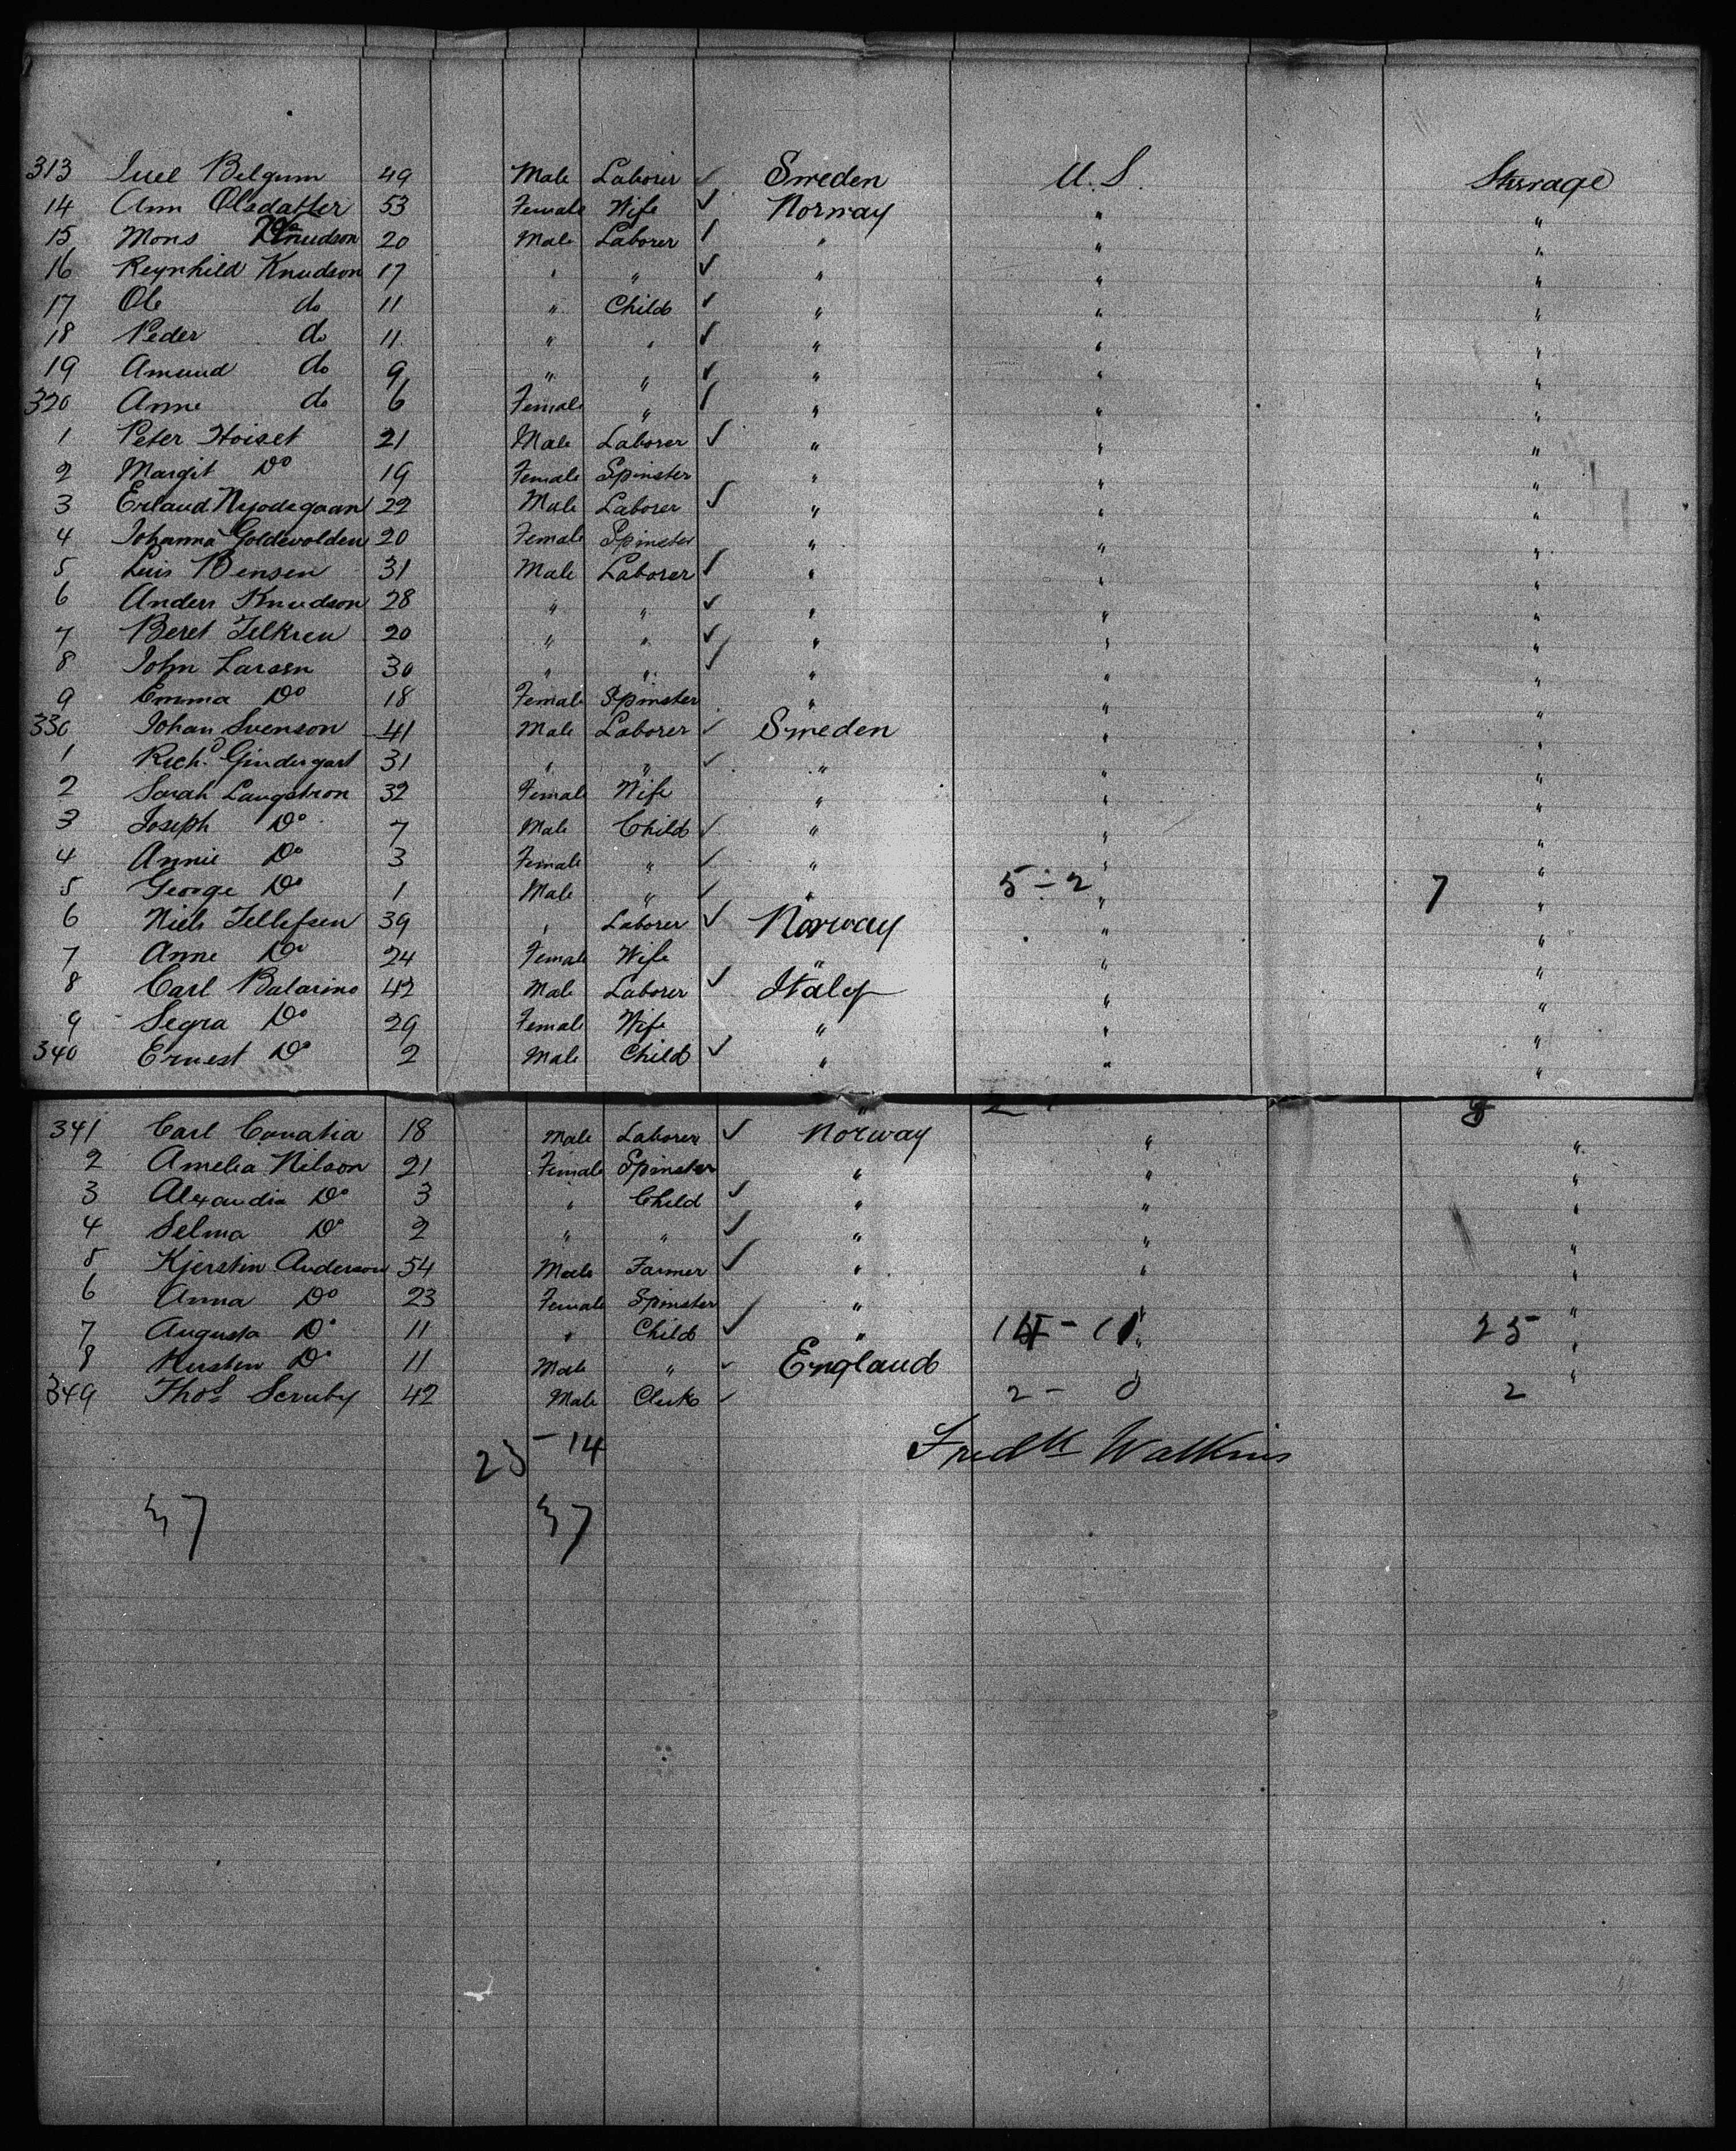 313 Juel Belgum 49 Male Laborer ✓ Sweden U.S. Sterrage
14 Ann Olsdatter 53 Female Wife ✓ Norway " "
15 Mons Knudson 20 Male Laborer ✓ " " "
16 Reynhild Knudson 17 " " ✓ " " "
17 Ole do 11 " Child ✓ " " "
18 Peder do 11 " " ✓ " " "
19 Amund do 9 " " ✓ " " "
320 Anne do 6 Female " ✓ " " "
1 Peter Hoiset 21 Male Laborer ✓ " " "
2 Margit Do 19 Female Spinster " " "
3 Erland 22 Male Laborer ✓ " " "
4 Johanna Goldevolden 20 Female Spinster " " "
5 Luis Bensen 31 Male Laborer ✓ " " "
6 Anders Knudson 28 " " ✓ " " "
7 Beret 20 " " ✓ " " "
8 John Larsen 30 " " ✓ " " "
9 Emma Do 18 Female Spinster " " "
330 Johan Svenson 41 Male Laborer ✓ Sweden " "
1 Richd Gindergart 31 " " ✓ " " "
2 Sarah Langstron 32 Female Wife " " "
3 Joseph Do 7 Male Child ✓ " " "
4 Annie Do 3 Female " ✓ " " "
5 George Do 1 Male " ✓ " 5-2 " 7 "
6 Niels Tellefsen 39 " Laborer ✓ Norway " "
7 Anne Do 24 Female Wife " " "
8 Carl Balarino 42 Male Laborer ✓ Italy " "
9 Segra Do 29 Female Wife " " "
340 Ernest Do 2 Male Child ✓ " " "
341 Carl Conatia 18 Male Laborer ✓ Norway " "
2 Amelia Nilson 21 Female Spinster " " "
3 Alexandia Do 3 " Child ✓ " " "
4 Selma Do 2 " " ✓ " " "
5 Kjerstin Anderson 54 Male Farmer ✓ " " "
6 Anna Do 23 Female Spinster " " "
7 Augusta Do 11 " Child ✓ " 14-11 " 25 "
8 Kerstin Do 11 Male " ✓ England " "
349 Thos Scruby 42 Male Clerk ✓ 2-0 2
23-14 Fredk Watkins
37 37